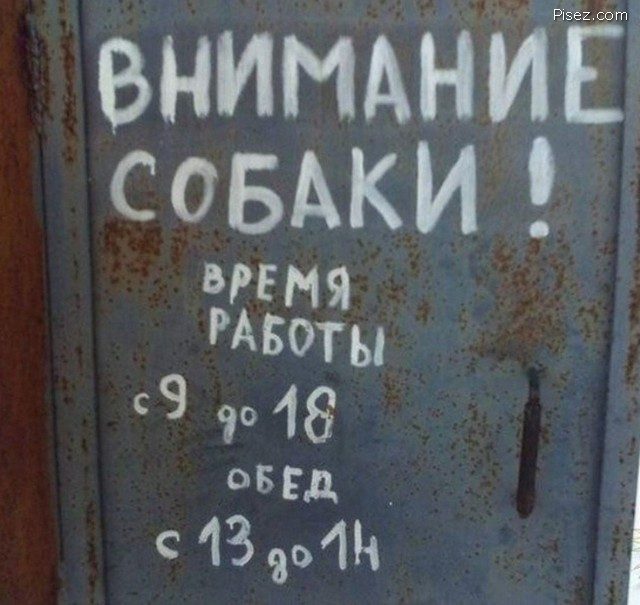 Pisez.com
ВНИМАНИЕ
СОБАКИ !
ВРЕМЯ
РАБОТЫ
с 9 до 18
ОБЕД
с 13 до 14